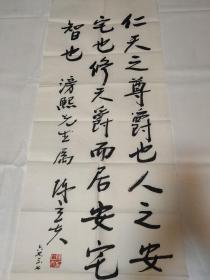 仁天之尊爵也人之安
宅也修天爵而居安宅
智也
滂熙先生属
陈立夫
六七、三、七